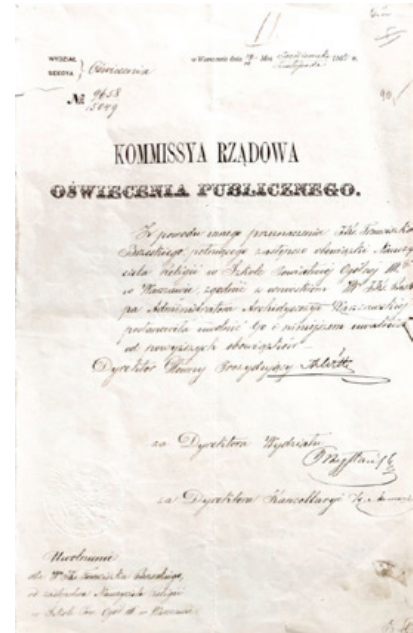 11.
WYDZIAŁ
SEKCYA
Oświecenia
w Warszawie dnia
Października
Listopada
№ 9658
15049
90
KOMMISSYA RZĄDOWA
OŚWIECENIA PUBLICZNEGO.
Z powodu innego przeznaczenia JKs. Franciszka
pełniącego zastępczo obowiązki Nauczy-
ciela Religii w Szkole Powiatowej Ogólnej III
w Warszawie, zgodnie z wnioskiem
pa Administratora Archidyecezyi Warszawskiej
postanowiła uwolnić Go i niniejszem uwalnia
od powyższych obowiązków.
Dyrektor Główny Prezydujący
za Dyrektora Wydziału
za Dyrektora Kancellaryi
Uwolnienie
dla W. JKs. Franciszka
od zastępstwa Nauczyciela Religii
w Szkole Pow. Ogól. III w Warszawie